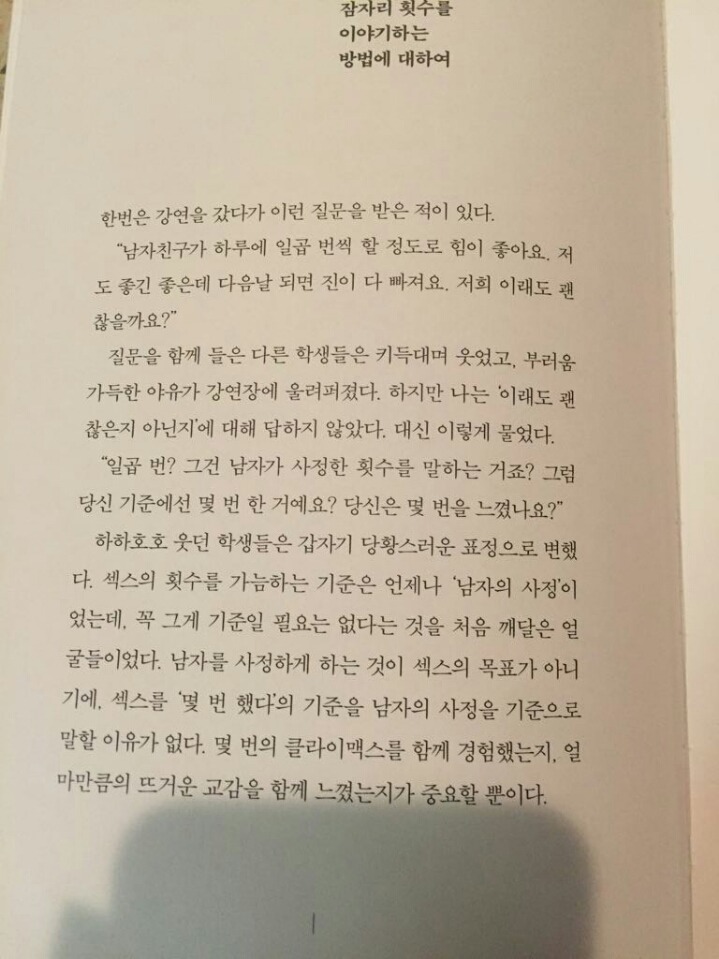 잠자리 횟수를
이야기하는
방법에 대하여
한번은 강연을 갔다가 이런 질문을 받은 적이 있다.
“남자친구가 하루에 일곱 번씩 할 정도로 힘이 좋아요. 저
도 좋긴 좋은데 다음날 되면 진이 다 빠져요. 저희 이래도 괜
찮을까요?”
질문을 함께 들은 다른 학생들은 키득대며 웃었고, 부러움
가득한 야유가 강연장에 울려퍼졌다. 하지만 나는 ‘이래도 괜
찮은지 아닌지’에 대해 답하지 않았다. 대신 이렇게 물었다.
“일곱 번? 그건 남자가 사정한 횟수를 말하는 거죠? 그럼
당신 기준에선 몇 번 한 거예요? 당신은 몇 번을 느꼈나요?”
하하호호 웃던 학생들은 갑자기 당황스러운 표정으로 변했
다. 섹스의 횟수를 가늠하는 기준은 언제나 ‘남자의 사정’이
었는데, 꼭 그게 기준일 필요는 없다는 것을 처음 깨달은 얼
굴들이었다. 남자를 사정하게 하는 것이 섹스의 목표가 아니
기에, 섹스를 ‘몇 번 했다’의 기준을 남자의 사정을 기준으로
말할 이유가 없다. 몇 번의 클라이맥스를 함께 경험했는지, 얼
마만큼의 뜨거운 교감을 함께 느꼈는지가 중요할 뿐이다.